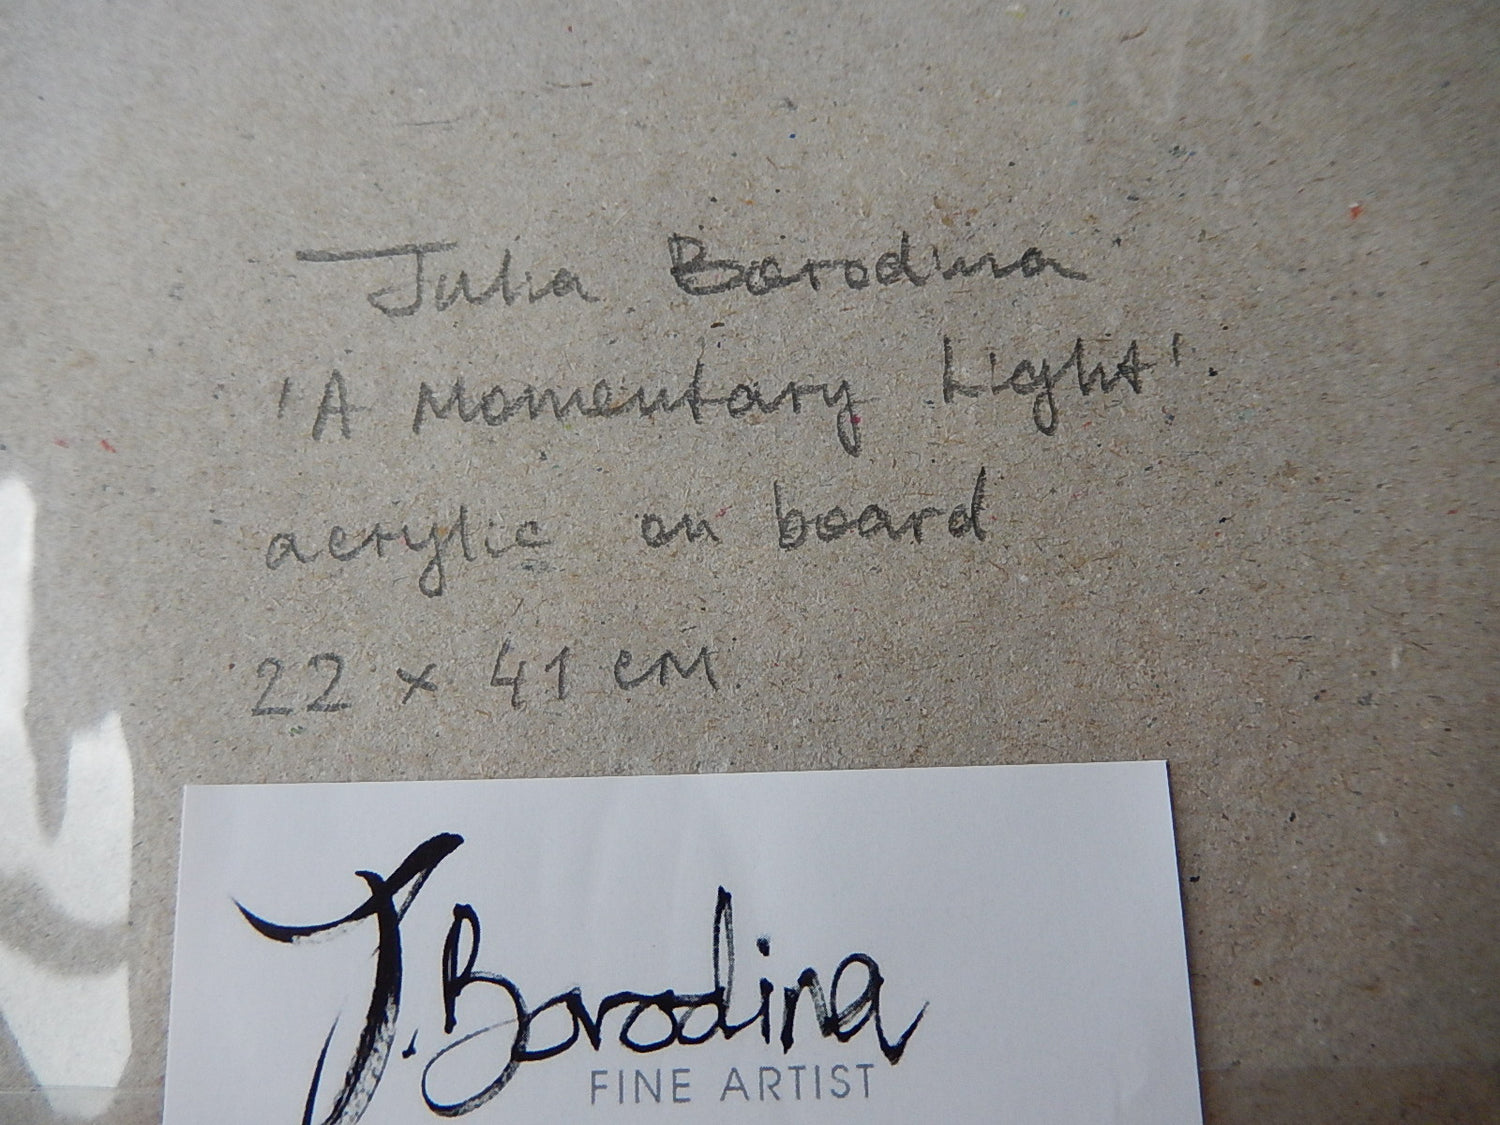 Julia Borodina
'A Momentary Light'.
acrylic on board
22 x 41 cm
J. Borodina
FINE ARTIST